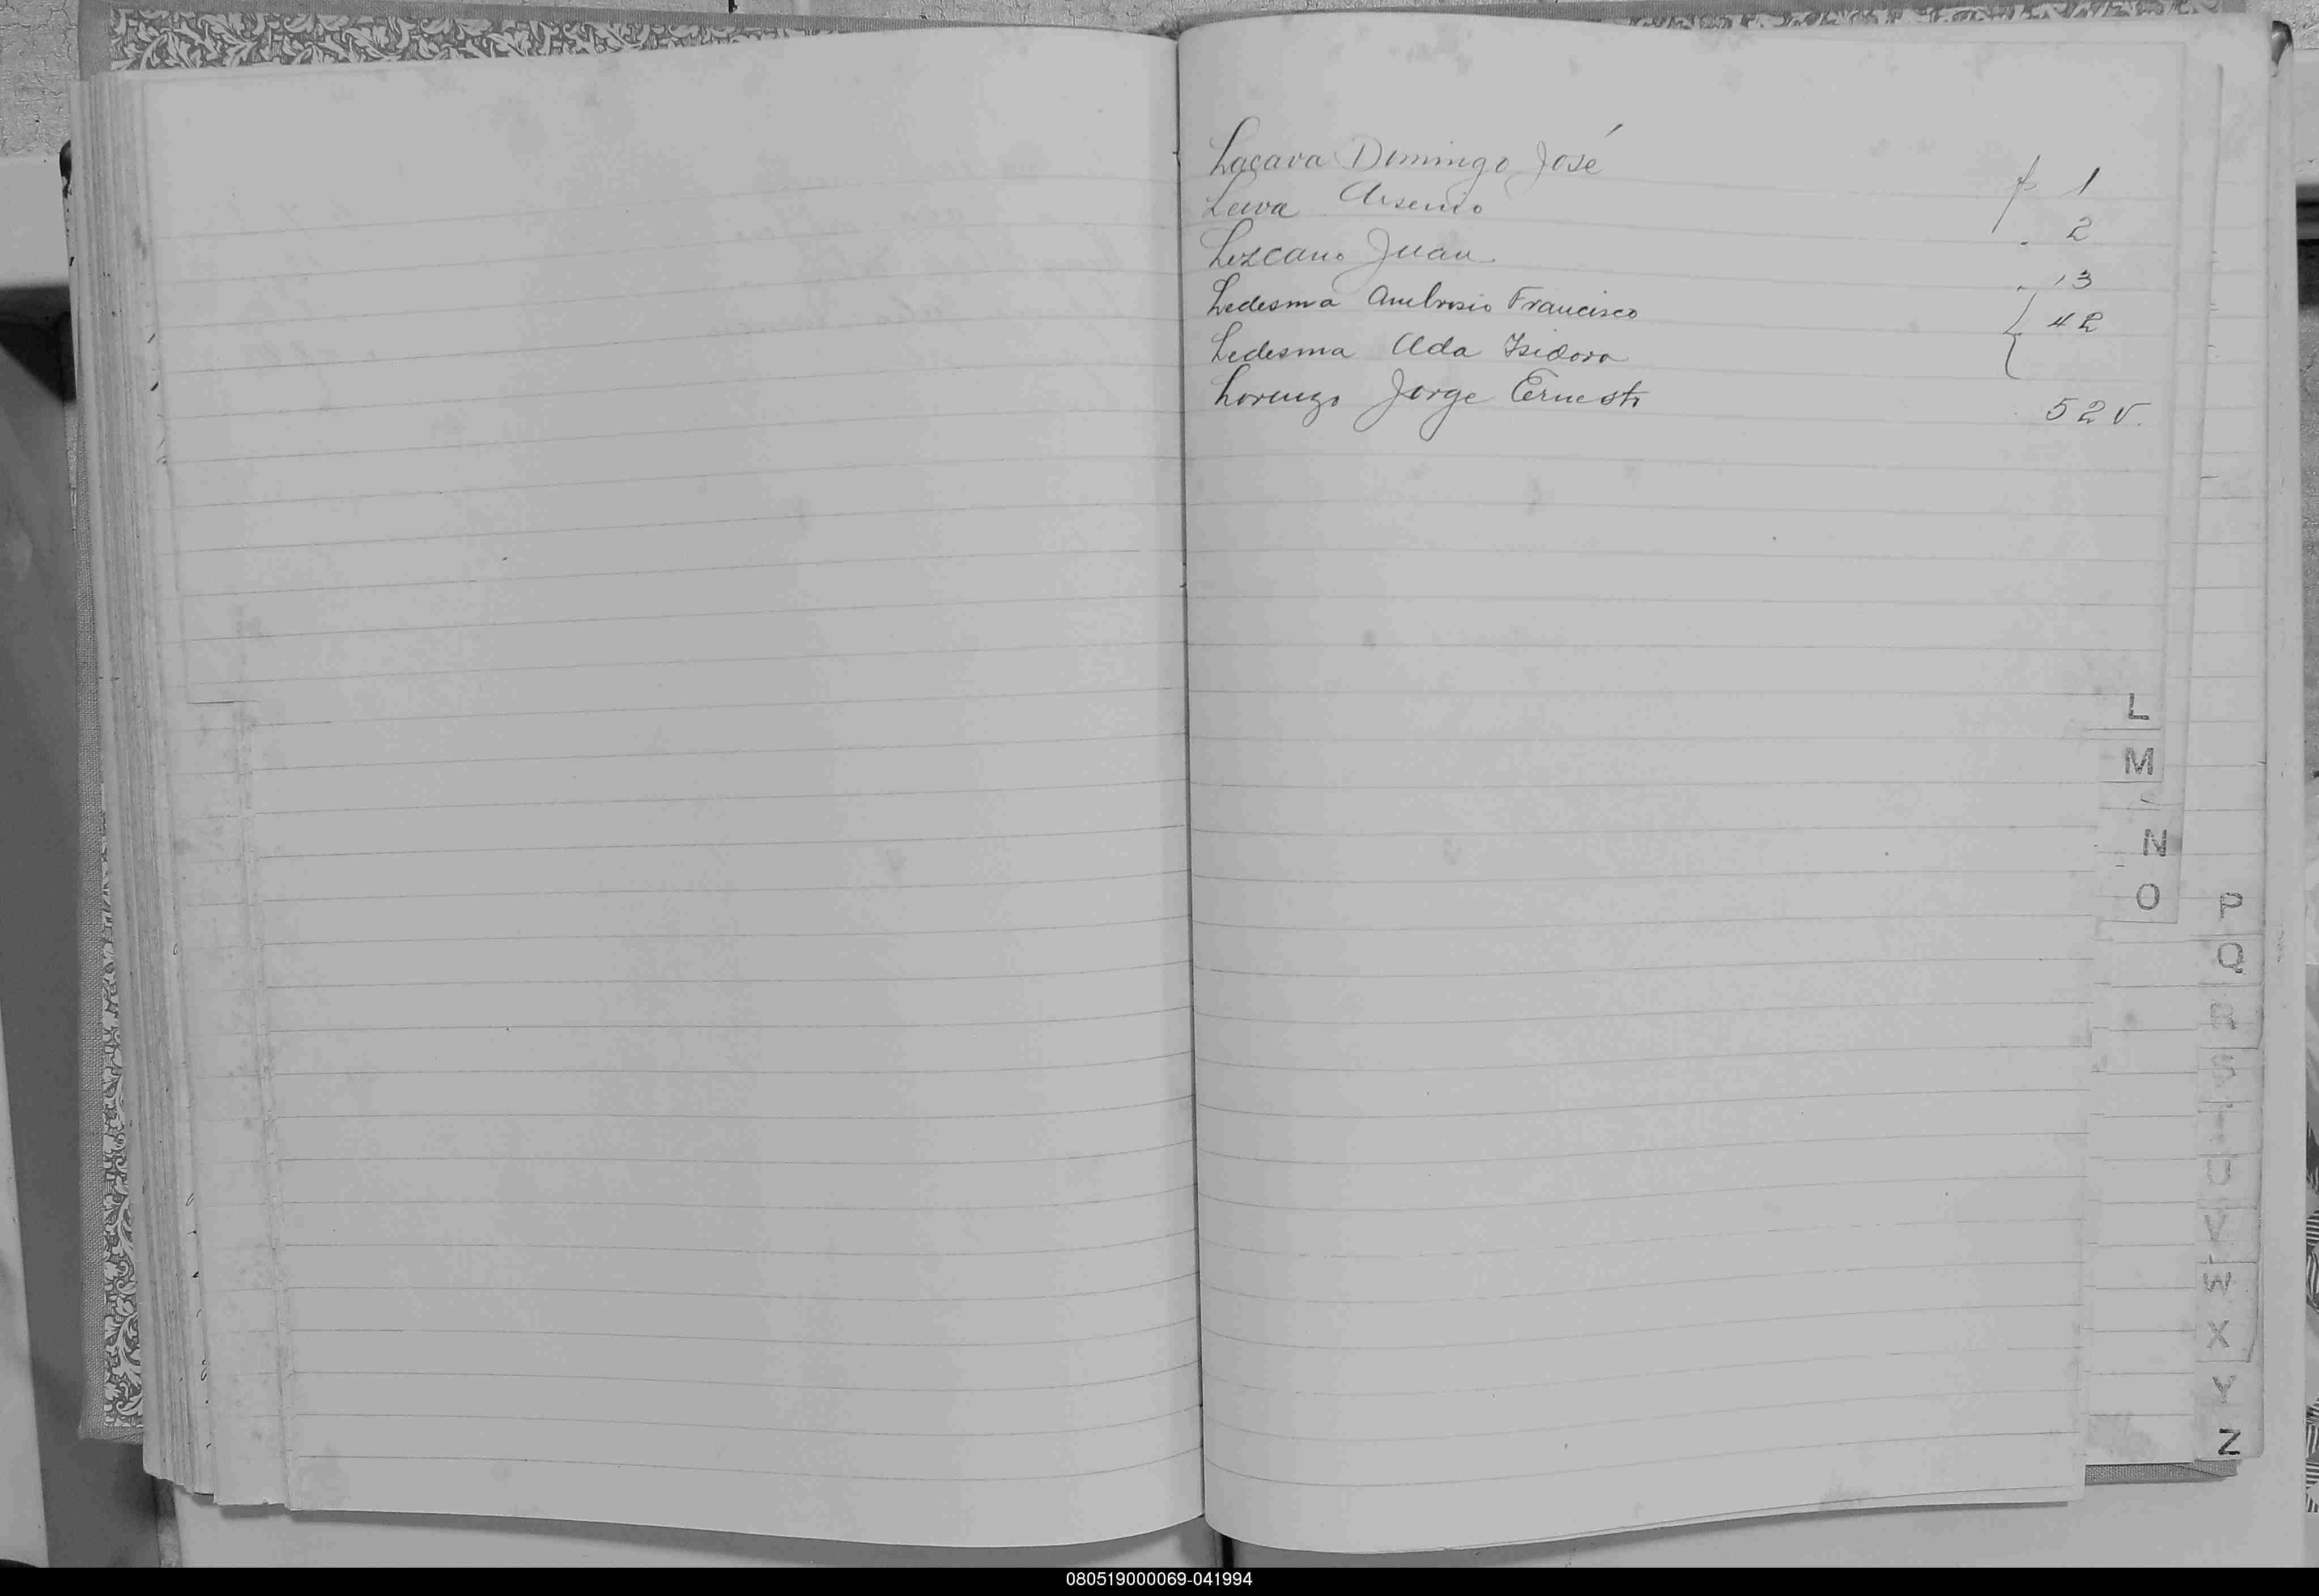 Lacava Domingo José f 1
Leiva Arsenio . 2
Lezcano Juan . 13
Ledesma Ambrosio Francisco { 42
Ledesma Ada Isidora
Lorenzo Jorge Ernesto 52 v.
L
M
N
O
P
Q
R
S
T
U
V
W
X
Y
Z
080519000069-041994